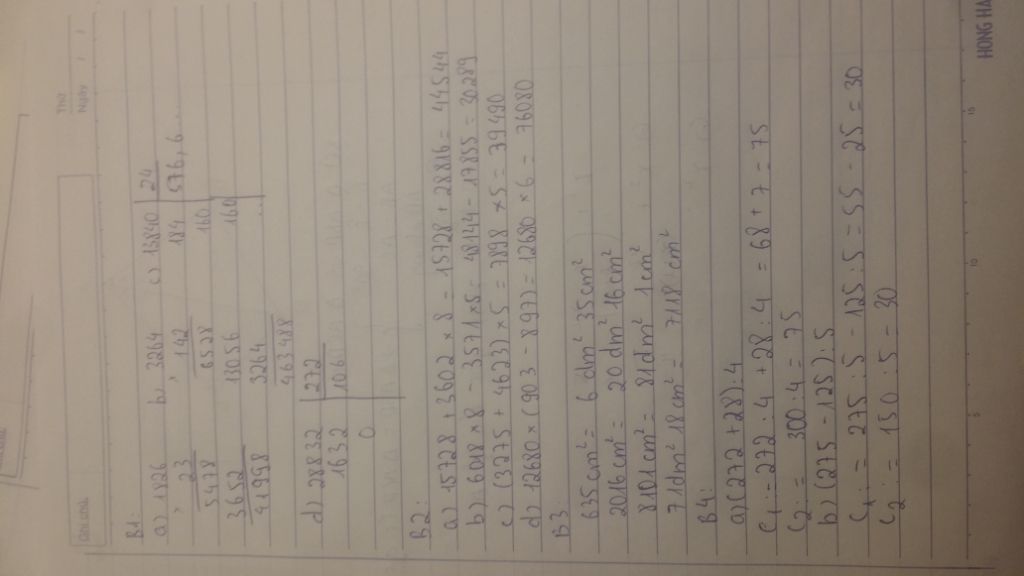 Thứ
Ngày / /
B1:
a) 1826 b, 3264 c) 13840 | 24
× 23 × 142 184 576,6...
5478 6528 160
3652 13056 160
41998 3264
463488
d) 28832 | 272
1632 106
0
B2:
a) 15728 + 3602 × 8 = 15728 + 28816 = 44544
b) 6018 × 8 - 3571 × 5 = 48144 - 17855 = 30289
c) (3275 + 4623) × 5 = 7898 × 5 = 39490
d) 12680 × (903 - 897) = 12680 × 6 = 76080
B3:
635cm² = 6 dm² 35cm²
2016cm² = 20 dm² 16cm²
8101cm² = 81dm² 1cm²
71dm² 18cm² = 7118 cm²
B4:
a) (272 + 28) : 4
C₁: = 272 : 4 + 28 : 4 = 68 + 7 = 75
C₂: = 300 : 4 = 75
b) (275 - 125) : 5
C₁: = 275 : 5 - 125 : 5 = 55 - 25 = 30
C₂: = 150 : 5 = 30
5 10 15
HONG HA